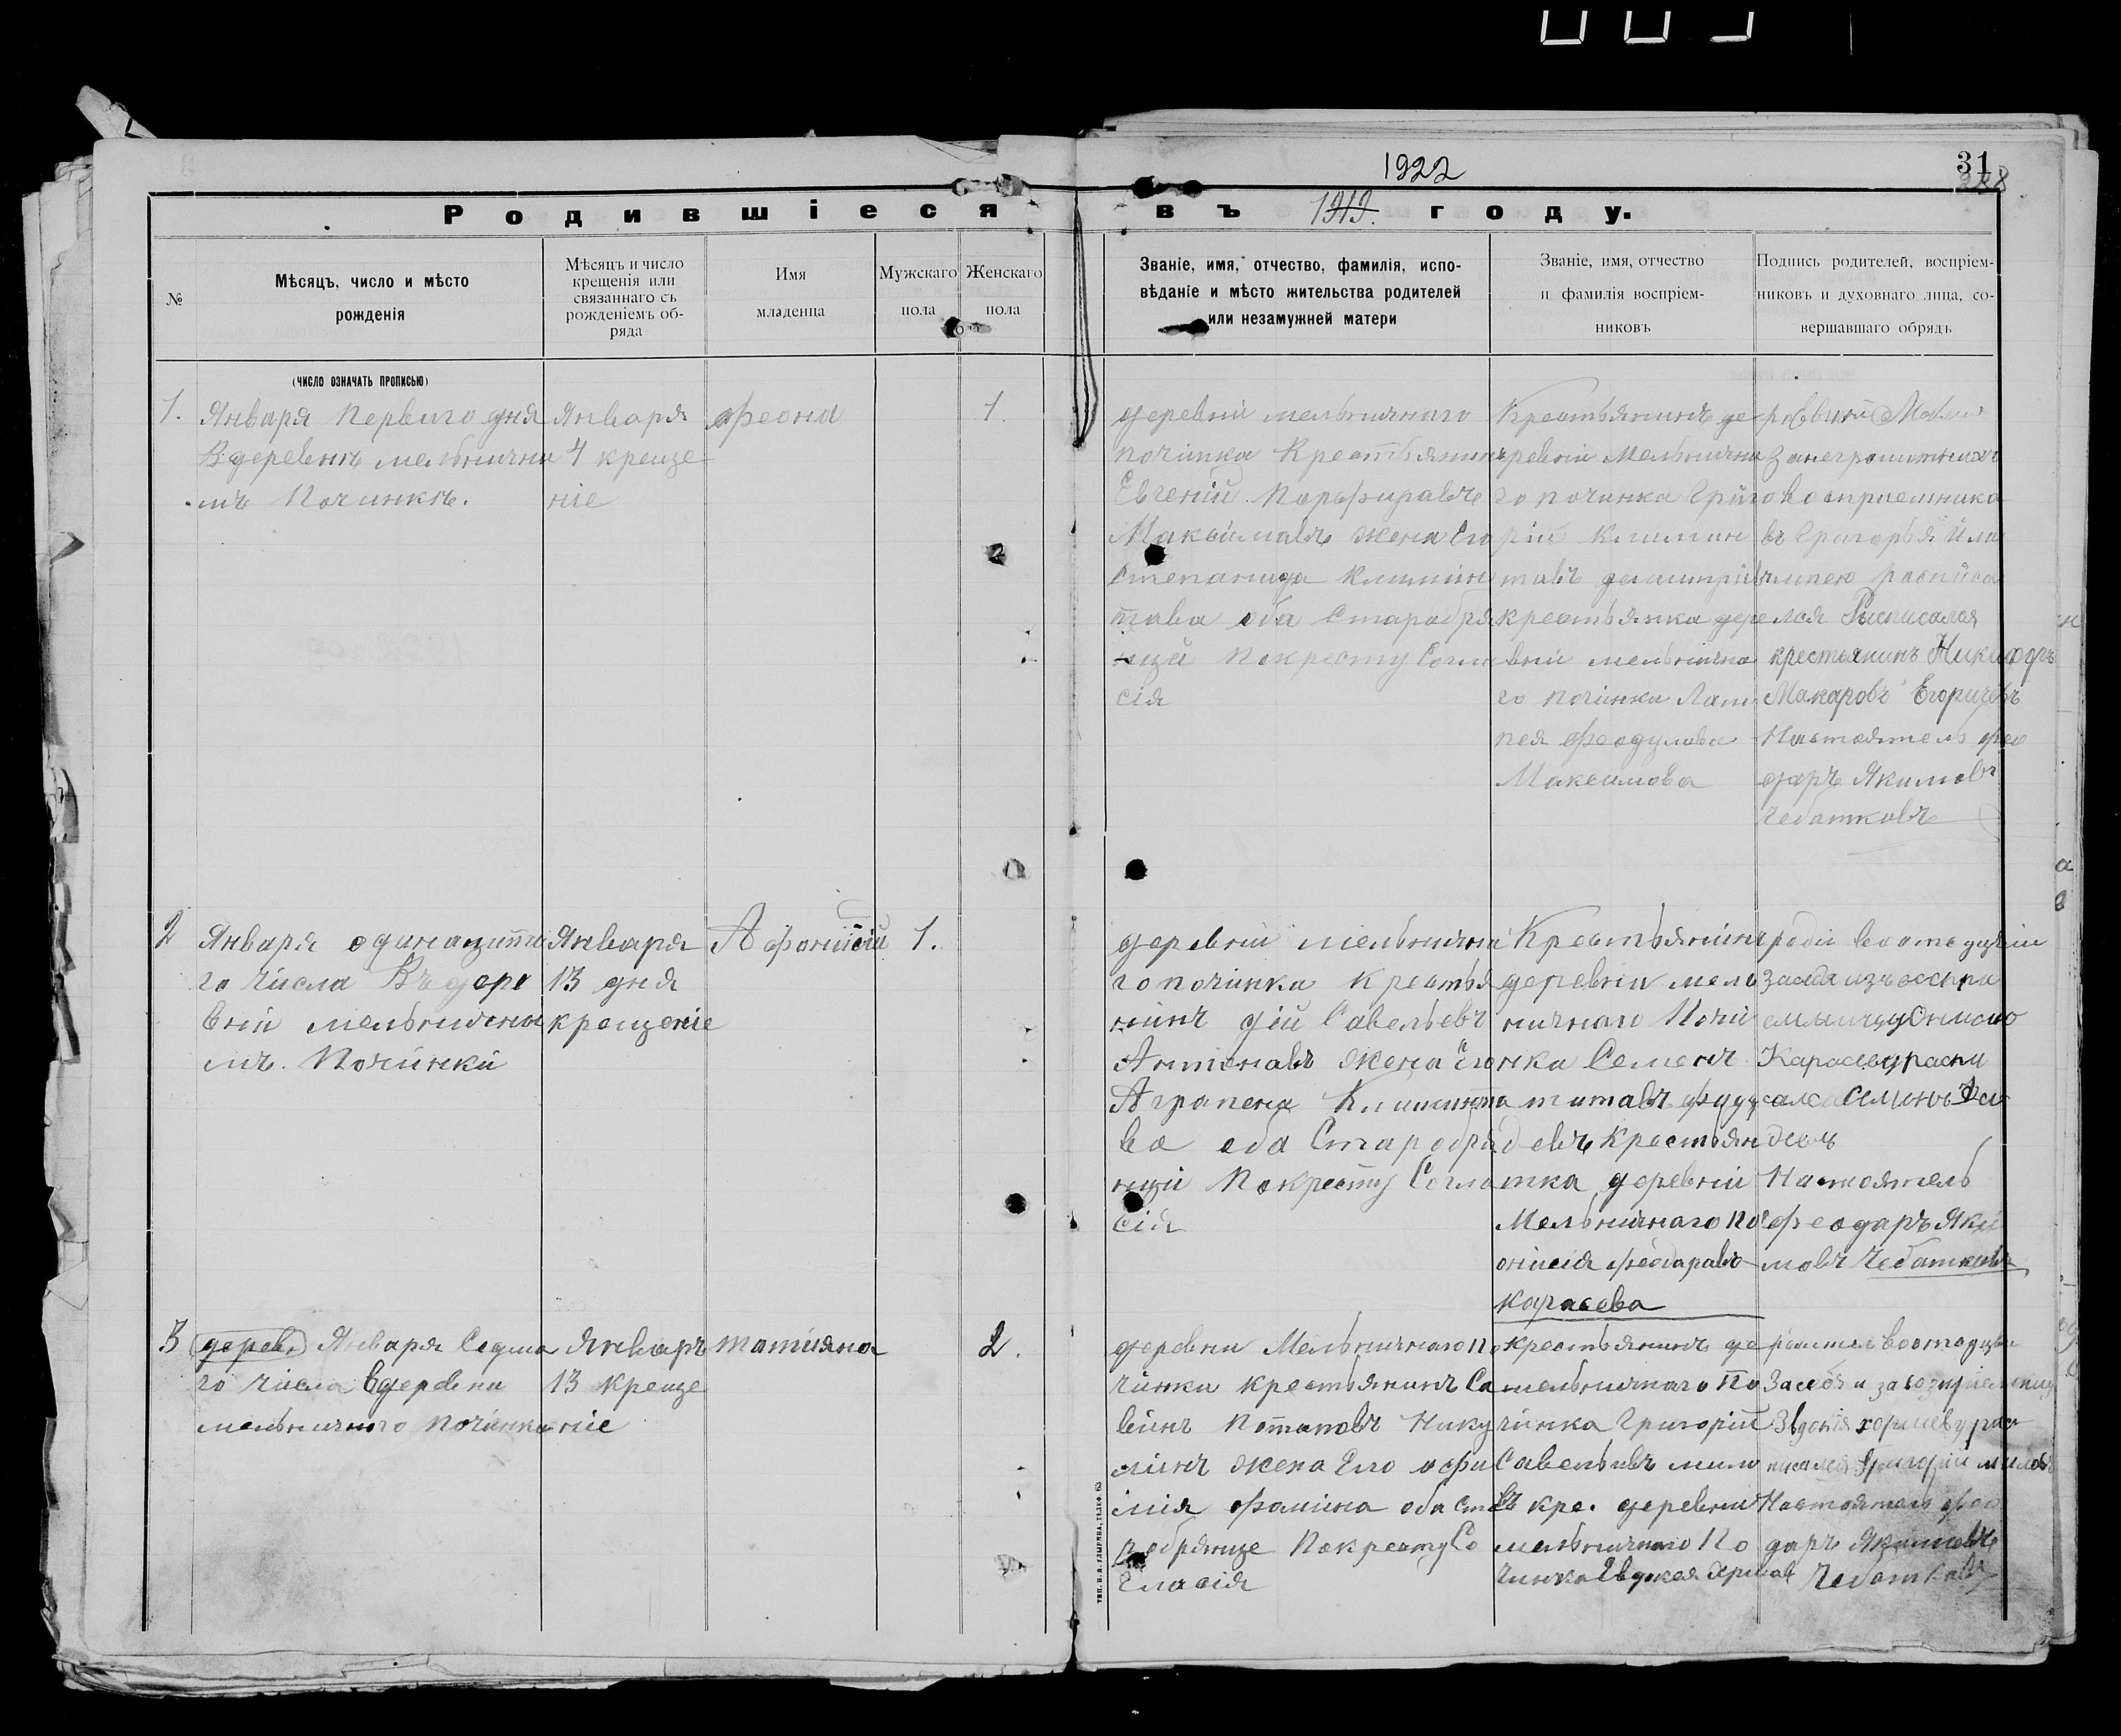 1922
31
328
Родившіеся въ 1919. году.
№
Мѣсяцъ, число и мѣсто
рожденія
Мѣсяцъ и число
крещенія или
связаннаго съ
рожденіемъ об-
ряда
Имя
младенца
Мужскаго
пола
Женскаго
пола
Званіе, имя, отчество, фамилія, испо-
вѣданіе и мѣсто жительства родителей
или незамужней матери
Званіе, имя, отчество
и фамилія воспріем-
никовъ
Подпись родителей, воспріем-
никовъ и духовнаго лица, со-
вершавшаго обрядъ
(число означать прописью)
1.
Января Первого дня
В деревнъ мельнични
мъ Починкъ.
Января
4 креще
ніе
феона
1.
деревній мельничнаго
починка Крестьянинъ
Евгеній Порьфиравъ
Максимавъ жена Его
Степанида Климин
това оба Старобря
нцы Покресту Согла
сія
Крестьянинъ де
ревній Мельнична
го починка Григо
рій Климин
тавъ
крестьянка дере
вній мельнична
го починка
пея феодулова
Максимова
воспріемника
въ Григорья
росписа
лся Росписался
крестьянинъ Никифоръ
Макаровъ Егоричевъ
Настоятель фео
даръ Якимовъ
Чебатковъ
2
Января одинацати
го числа Въ дере
вній мельничны
мъ Починки
Января
13 дня
крещеніе
Афонисій
1.
деревній мельнична
го починка крестья
нинъ Савельевъ
Антонавъ жена Его
Аграпена Климинта
ва оба Старобря
нцій Покресту Согла
сія
Крестьянинъ
деревній мель
ничнаго Почи
нка Семенъ
титавъ
девъ крестьян
тка деревній
Мельничнаго по
онисія феодаравъ
карасева
Карасеву распи
сался Семинъ
девъ
Настоятель
феодаръ Яки
мовъ Чебатковъ
3
дерев. Января Седма
го числа вдеревни
мельничного починка
Январъ
13 креще
ніе
татияна
2.
деревни Мельничнаго по
чинки крестьянинъ Са
винъ Потаповъ Нику
линъ жена Его
имія фамина оба Ста
робрянце Покресту Со
гласія
крестьянинъ де
мельничнаго По
чинка Григорій
Савельивъ мило
въ кре. деревни
мельничнаго По
чинка Евдокея
Настоятель фео
даръ Якимовъ
Чебатковъ